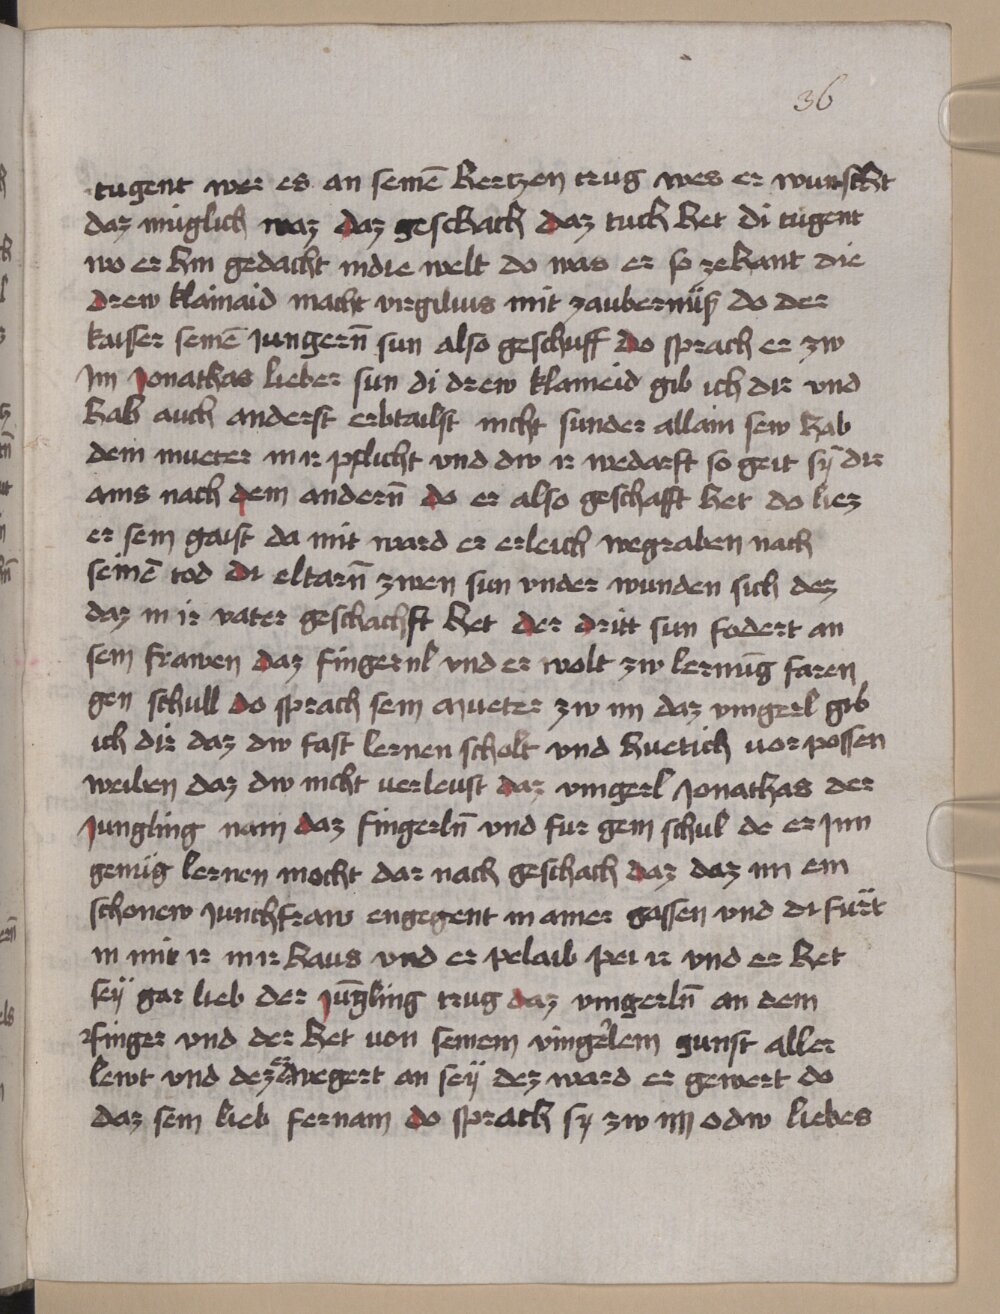 36
tugent wer es an seinē hertzen trug wes er wunscht
daz müglich waz daz geschach daz tuch het di tugent
wo er hin gedacht in die welt do was er so zehant die
drew klainaid macht virgilius mit zaubernüß do der
kaiser seinē Jungern̄ sun also geschuff do sprach er zw
Im Jonathas lieber sun di drew klaineid gib ich dir vnd
hab auch anderst erbtailst nicht sunder allain sew hab
dein mueter in ir pflicht vnd dw ir wedarft so geit sy̆ dir
ains nach dem andern̄ do er also geschafft het do liez
er sein gaist da mit ward er erleich wegraben nach
seinē tod di eltarn̄ zwen sun vnder wunden sich dez
daz in ir vater geschachft het der dritt sun fodert an
sein frawen daz fingernl vnd er wolt zw lernūg faren
gen schull do sprach sein mueter zw im daz vingerl gib
ich dir daz dw fast lernen scholt vnd huetich vor possen
weiben daz dw nicht verleust daz vingerl Jonathas der
Jungling nam daz fingerln̄ vnd fur gein schul do er Inn
genüg lernen mocht dar nach geschach daz daz im ein
schonew Junchfraw engegent in ainer gassen vnd di fürt
in mit ir in ir haus vnd er pelaib pei ir vnd er het
seÿ gar lieb der jūgling trug daz vingerln̄ an dem
finger vnd der het von seinem vingerlein gunst aller
lewt vnd dez er wegert an seÿ dez ward er gewert do
daz sein lieb fernam do sprach sy zw im o dw liebes